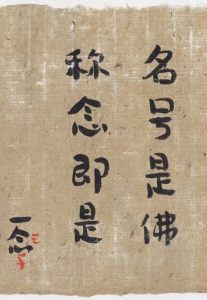 名号是佛
称念即是
一念